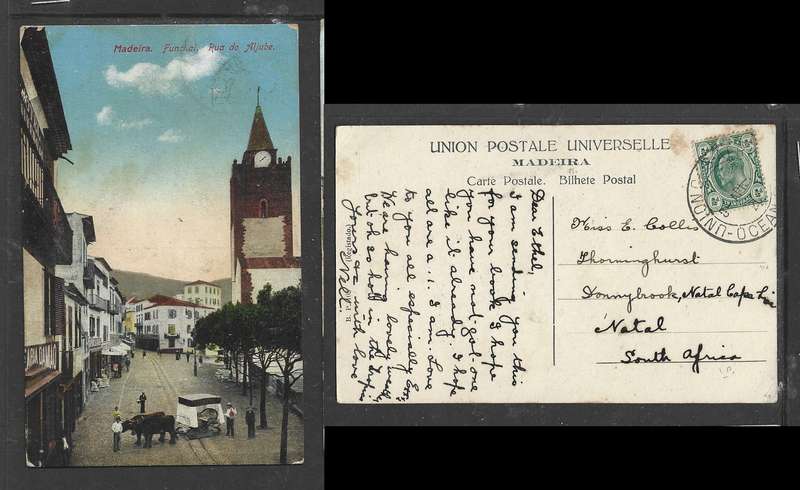 Madeira. Funchal, Rua do Aljube.
UNION POSTALE UNIVERSELLE
MADEIRA
Carte Postale. Bilhete Postal
Dear Ethel,
I am sending you this
for your book I hope
you have not got one
like it already. I hope
all are a.1. I am. Love
to you all especially
We are having lovely weather
but oh so hot in the tropics
Yours as with love
Nell
(Registado)
Miss E. Collis
Thorninghurst
Donnybrook, Natal Cape Line
Natal
South Africa
UNION-OCEAN